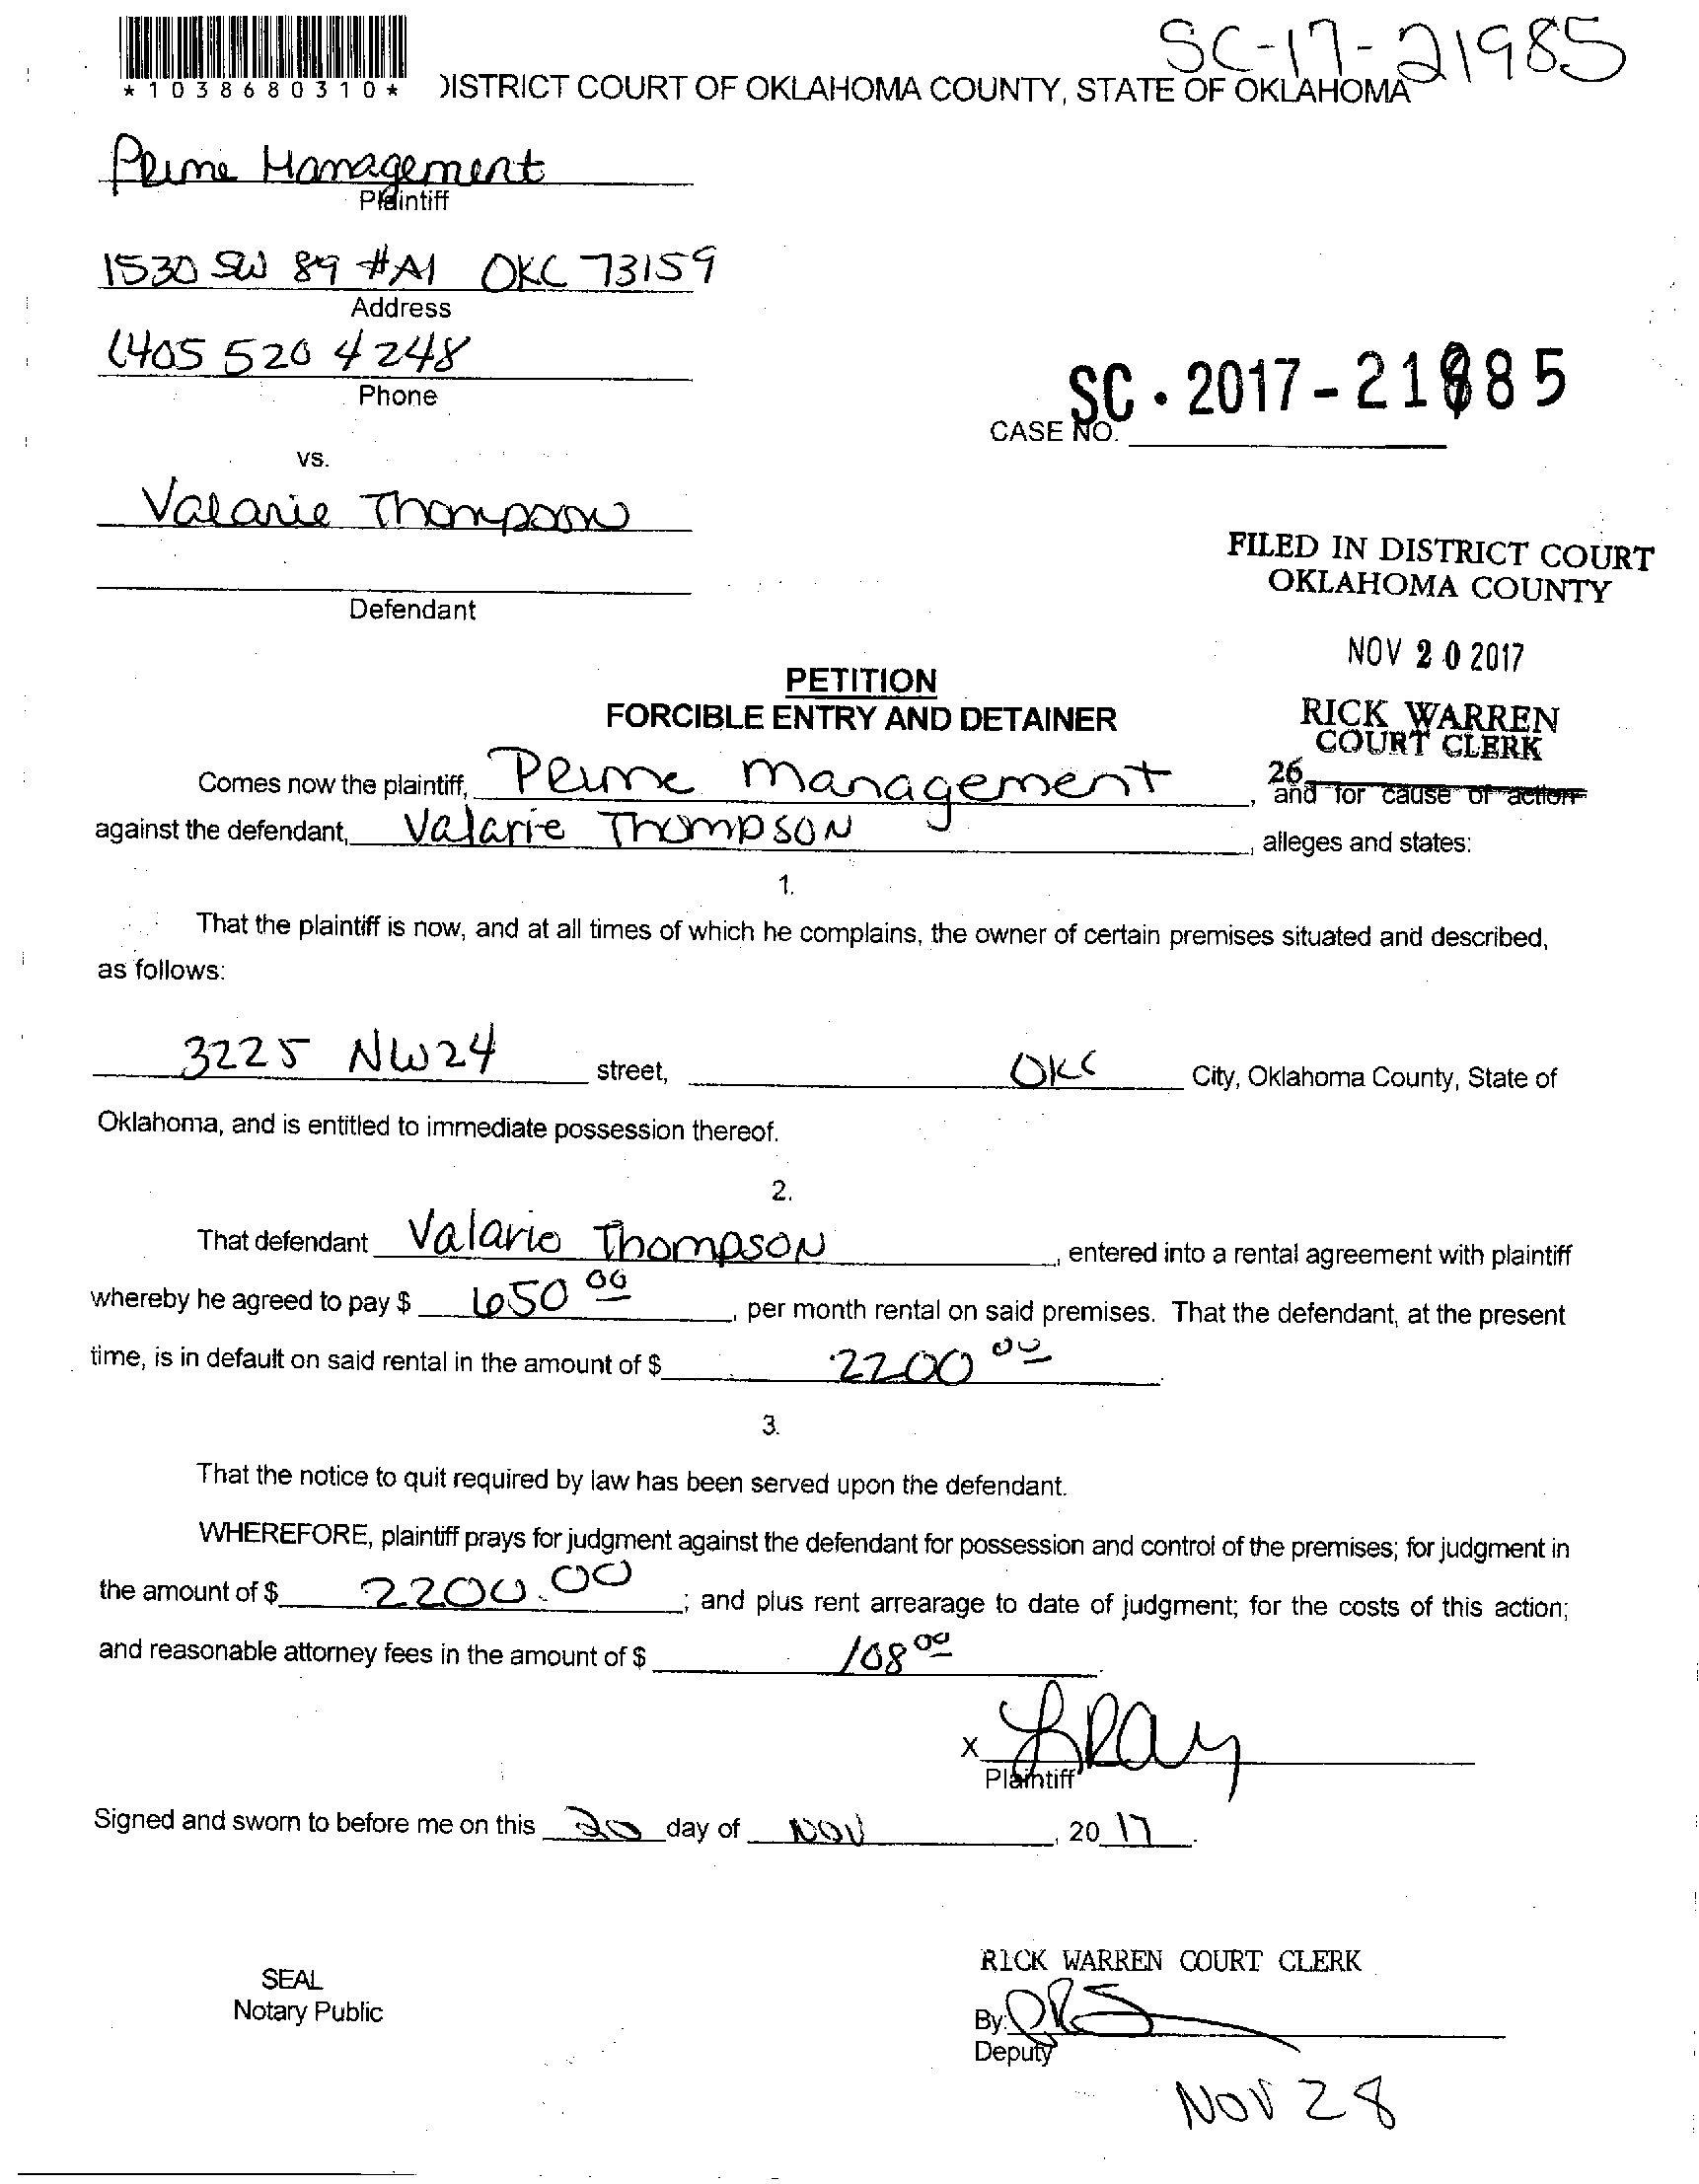 SC-17-21985
*1038680310*
)ISTRICT COURT OF OKLAHOMA COUNTY, STATE OF OKLAHOMA
Prime Management
Plaintiff
1530 SW 89 #A1 OKC 73159
Address
(405 520 4248
Phone
SC · 2017-21985
CASE NO.
vs.
Valarie Thompson
FILED IN DISTRICT COURT
OKLAHOMA COUNTY
Defendant
NOV 20 2017
PETITION
FORCIBLE ENTRY AND DETAINER
RICK WARREN
COURT CLERK
26
Comes now the plaintiff, Prime Management, and for cause of action
against the defendant, Valarie Thompson, alleges and states:
1.
That the plaintiff is now, and at all times of which he complains, the owner of certain premises situated and described,
as follows:
3225 NW24 street, OKC City, Oklahoma County, State of
Oklahoma, and is entitled to immediate possession thereof.
2.
That defendant Valarie Thompson, entered into a rental agreement with plaintiff
whereby he agreed to pay $ 650 00, per month rental on said premises. That the defendant, at the present
time, is in default on said rental in the amount of $ 2200 00.
3.
That the notice to quit required by law has been served upon the defendant.
WHEREFORE, plaintiff prays for judgment against the defendant for possession and control of the premises; for judgment in
the amount of $ 2200.00; and plus rent arrearage to date of judgment; for the costs of this action;
and reasonable attorney fees in the amount of $ 108 00.
X LRay
Plaintiff
Signed and sworn to before me on this 20 day of NOV, 20 17.
RICK WARREN COURT CLERK
SEAL
Notary Public
By:
Deputy
NOV 28